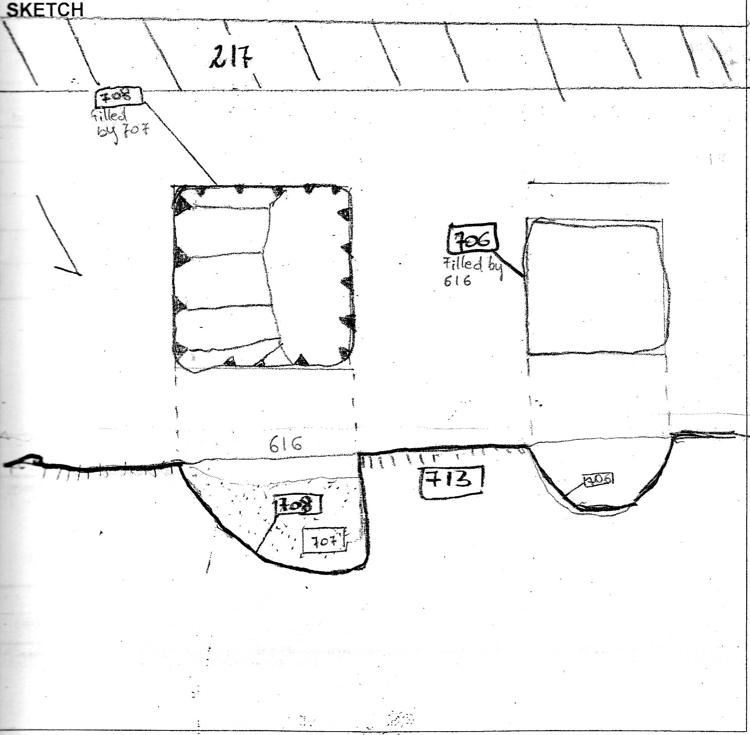 SKETCH
217
708
Filled
by 707
706
Filled by
616
616
713
708
706
707